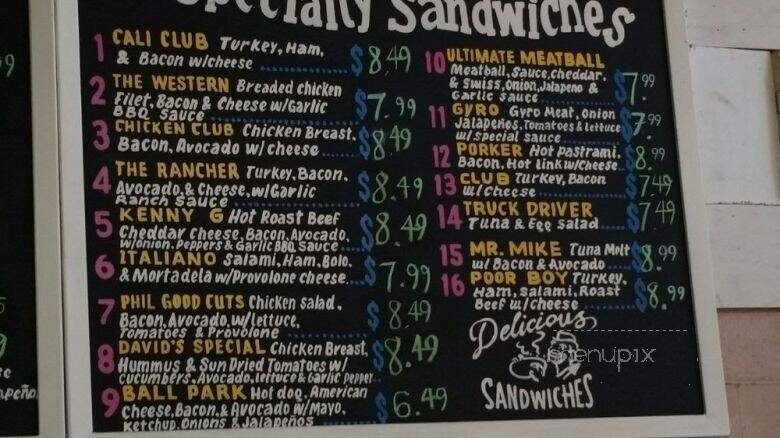 Specialty Sandwiches
1 CALI CLUB Turkey, Ham,
& Bacon w/cheese $8.49
2 THE WESTERN Breaded chicken
Filet, Bacon & Cheese w/Garlic
BBQ Sauce $7.99
3 CHICKEN CLUB Chicken Breast,
Bacon, Avocado w/cheese $8.49
4 THE RANCHER Turkey, Bacon,
Avocado & Cheese, w/Garlic
Ranch sauce $8.49
5 KENNY G Hot Roast Beef
Cheddar Cheese, Bacon, Avocado,
w/onion, Peppers & Garlic BBQ Sauce $8.49
6 ITALIANO Salami, Ham, Bolo,
& Mortadela w/Provolone cheese $7.99
7 PHIL GOOD CUTS Chicken salad,
Bacon, Avocado, w/Lettuce,
Tomatoes & Provolone $8.49
8 DAVID'S SPECIAL Chicken Breast,
Hummus & Sun Dried Tomatoes w/
cucumbers, Avocado, lettuce & Garlic Pepper $8.49
9 BALL PARK Hot dog, American
Cheese, Bacon & Avocado w/Mayo,
Ketchup, Onions & Jalapeños $6.49
10 ULTIMATE MEATBALL
Meatball, Sauce, cheddar,
& Swiss, Onion, Jalapeno &
Garlic Sauce $7.99
11 GYRO Gyro Meat, Onion
Jalapeños, Tomatoes & Lettuce
w/special sauce $7.99
12 PORKER Hot pastrami,
Bacon, Hot link w/Cheese $8.99
13 CLUB Turkey, Bacon
w/Cheese $7.49
14 TRUCK DRIVER
Tuna & Egg Salad $7.49
15 MR. MIKE Tuna Melt
w/ Bacon & Avocado $8.99
16 POOR BOY Turkey,
Ham, Salami, Roast
Beef w/Cheese $8.99
Delicious
SANDWICHES
menupix